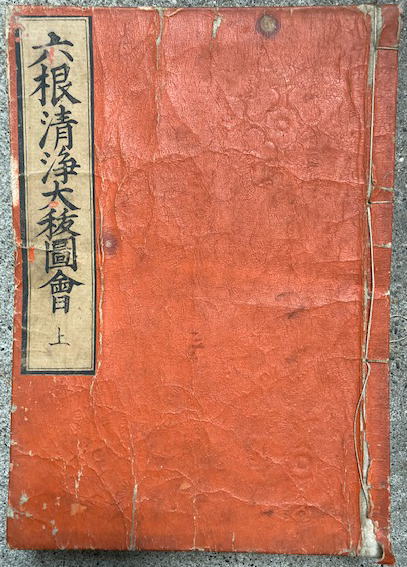 六根清浄大秡圖會
上